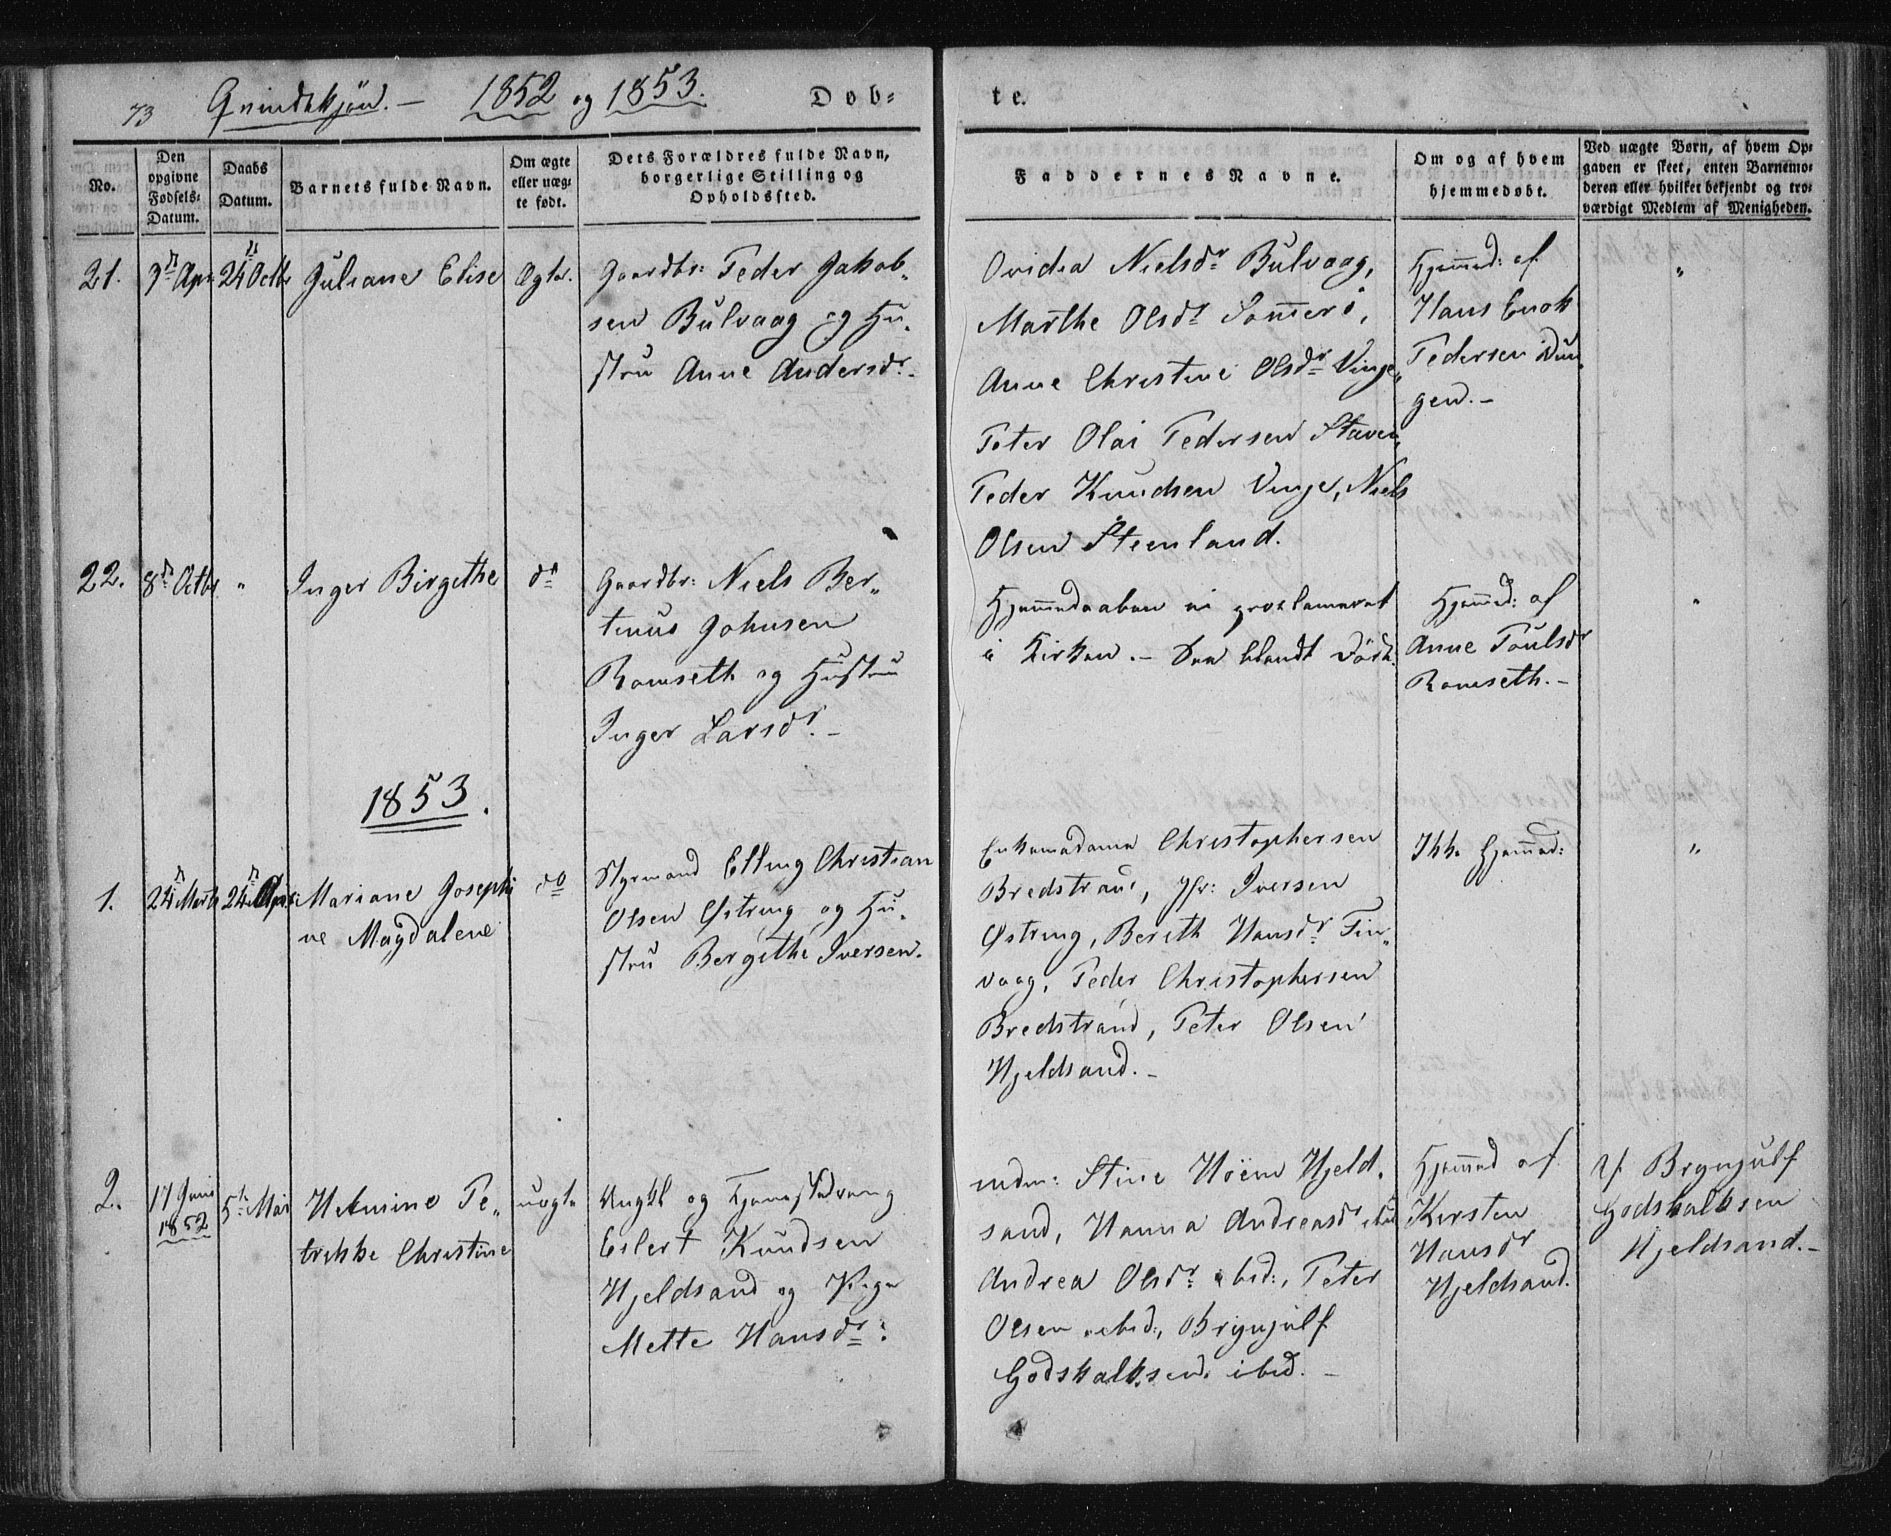 73 Qvindekjön. — 1852 og 1853. Dob-
te.
No.
Den opgivne Fødsels-Datum.
Daabs Datum.
Barnets fulde Navn.
Om ægte eller uæg-te født.
Dets Forældres fulde Navn, borgerlige Stilling og Opholdssted.
Faddernes Navne.
Om og af hvem hjemmedøbt.
Ved uægte Børn, af hvem Op-
gaven er skeet, enten Barnemo-
deren eller hvilket bekjendt og tro-
værdigt Medlem af Menigheden.
21.
24 Octbr
Juliane Elise
Ægte.
Gaardbr: Peder Jakob-
sen Bulvaag og Hu-
stru Anne Andersdr.-
Ovidia Nielsdr Bulvaag,
Marthe Olsdr
Anne Christine Olsdr Vinje,
Peter Olai Pedersen Staven,
Peder Knudsen Vinje, Niels
Olsen Steenland.
Hjemmed: af
Hans Enok
Pedersen
gen.-
"
22.
8d Octbr
"
Inger Birgethe
do
Gaardbr: Niels Ber-
tinus Johnsen
Romseth og Hustru
Inger Larsdr.-
Hjemmedaaben ei proklameret
i Kirken.- Seer blandt Döde.
Hjemmed: af
Anne Poulsdr
Romseth.-
"
1853.
1.
24 Marts
24 April
Mariane Josephi
ne Magdalene
do
Styrmand Elling Christian
Olsen Østreng og Hu-
stru Bergithe Iversen.
Enkemadame Christophersen
Bredstrand, Jfr: Iversen
Østreng, Bereth Hansdr Fin-
vaag, Peder Christophersen
Bredstrand, Peter Olsen
Hjeldsand.-
Ikke Hjemmed:
"
2.
17 Juni
1852
5te Mai
Helmine Pe-
trikke Christine
uægte
Ungkl og
Eilert Knudsen
Hjeldsand og Pige
Mette Hansdr:
Stine Höiem Hjeld-
sand, Hanna Andreasdr ibid
Andrea Olsdr ibid:, Peter
Olsen ibid:, Brynjulf
Godskalksen ibid.-
Hjemmed af
Kersten
Hansdr
Hjeldsand.
Af Brynjulf
Godskalksen
Hjeldsand.-